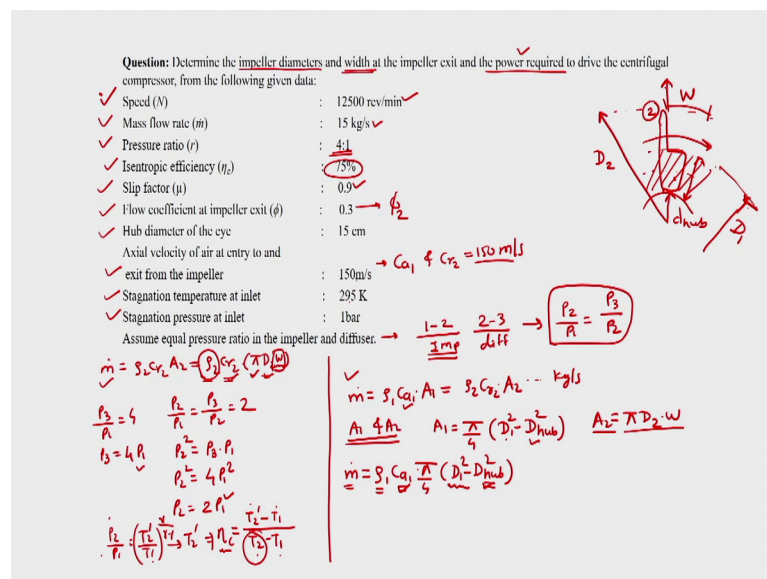 Question: Determine the impeller diameters and width at the impeller exit and the power required to drive the centrifugal
compressor, from the following given data:
Speed (N) : 12500 rev/min
Mass flow rate (ṁ) : 15 kg/s
Pressure ratio (r) : 4:1
Isentropic efficiency (ηc) : 75%
Slip factor (μ) : 0.9
Flow coefficient at impeller exit (ϕ) : 0.3 → ϕ2
Hub diameter of the eye : 15 cm
Axial velocity of air at entry to and
exit from the impeller : 150m/s → Ca1 & Cr2 = 150 m/s
Stagnation temperature at inlet : 295 K
Stagnation pressure at inlet : 1bar
Assume equal pressure ratio in the impeller and diffuser. → 1-2 Imp 2-3 diff → P2/P1 = P3/P2
2 W
D2
dhub
D1
ṁ = ρ2 Cr2 A2 = ρ2 Cr2 (πD2 W)
P3/P1 = 4 P2/P1 = P3/P2 = 2
P3 = 4P1 P2² = P3·P1
P2² = 4P1²
P2 = 2P1
P2/P1 = (T2'/T1)^γ/γ-1 → T2' ⇒ ηc = T2' - T1 / T2 - T1
ṁ = ρ1 Ca1 A1 = ρ2 Cr2 A2 --- kg/s
A1 & A2 A1 = π/4 (D1² - Dhub²) A2 = πD2·W
ṁ = ρ1 Ca1 π/4 (D1² - Dhub²)